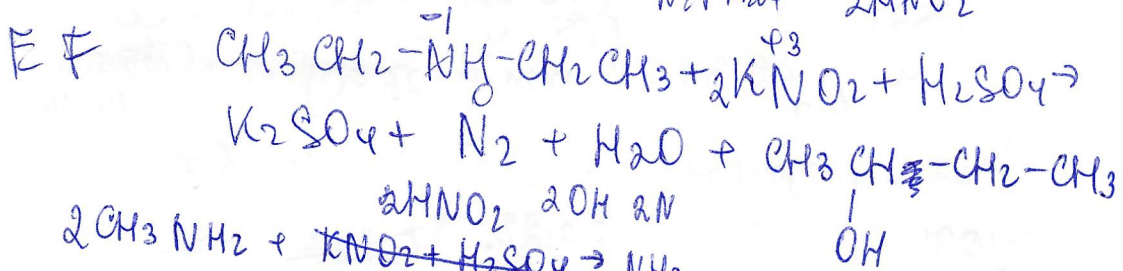 2HNO2
-1 +3
E F CH3CH2-NH-CH2CH3+2KNO2+H2SO4→
K2SO4+ N2 + H2O + CH3CH-CH2-CH3
2HNO2 2OH 2N
OH
2CH3NH2 + KNO2+H2SO4→ NH2